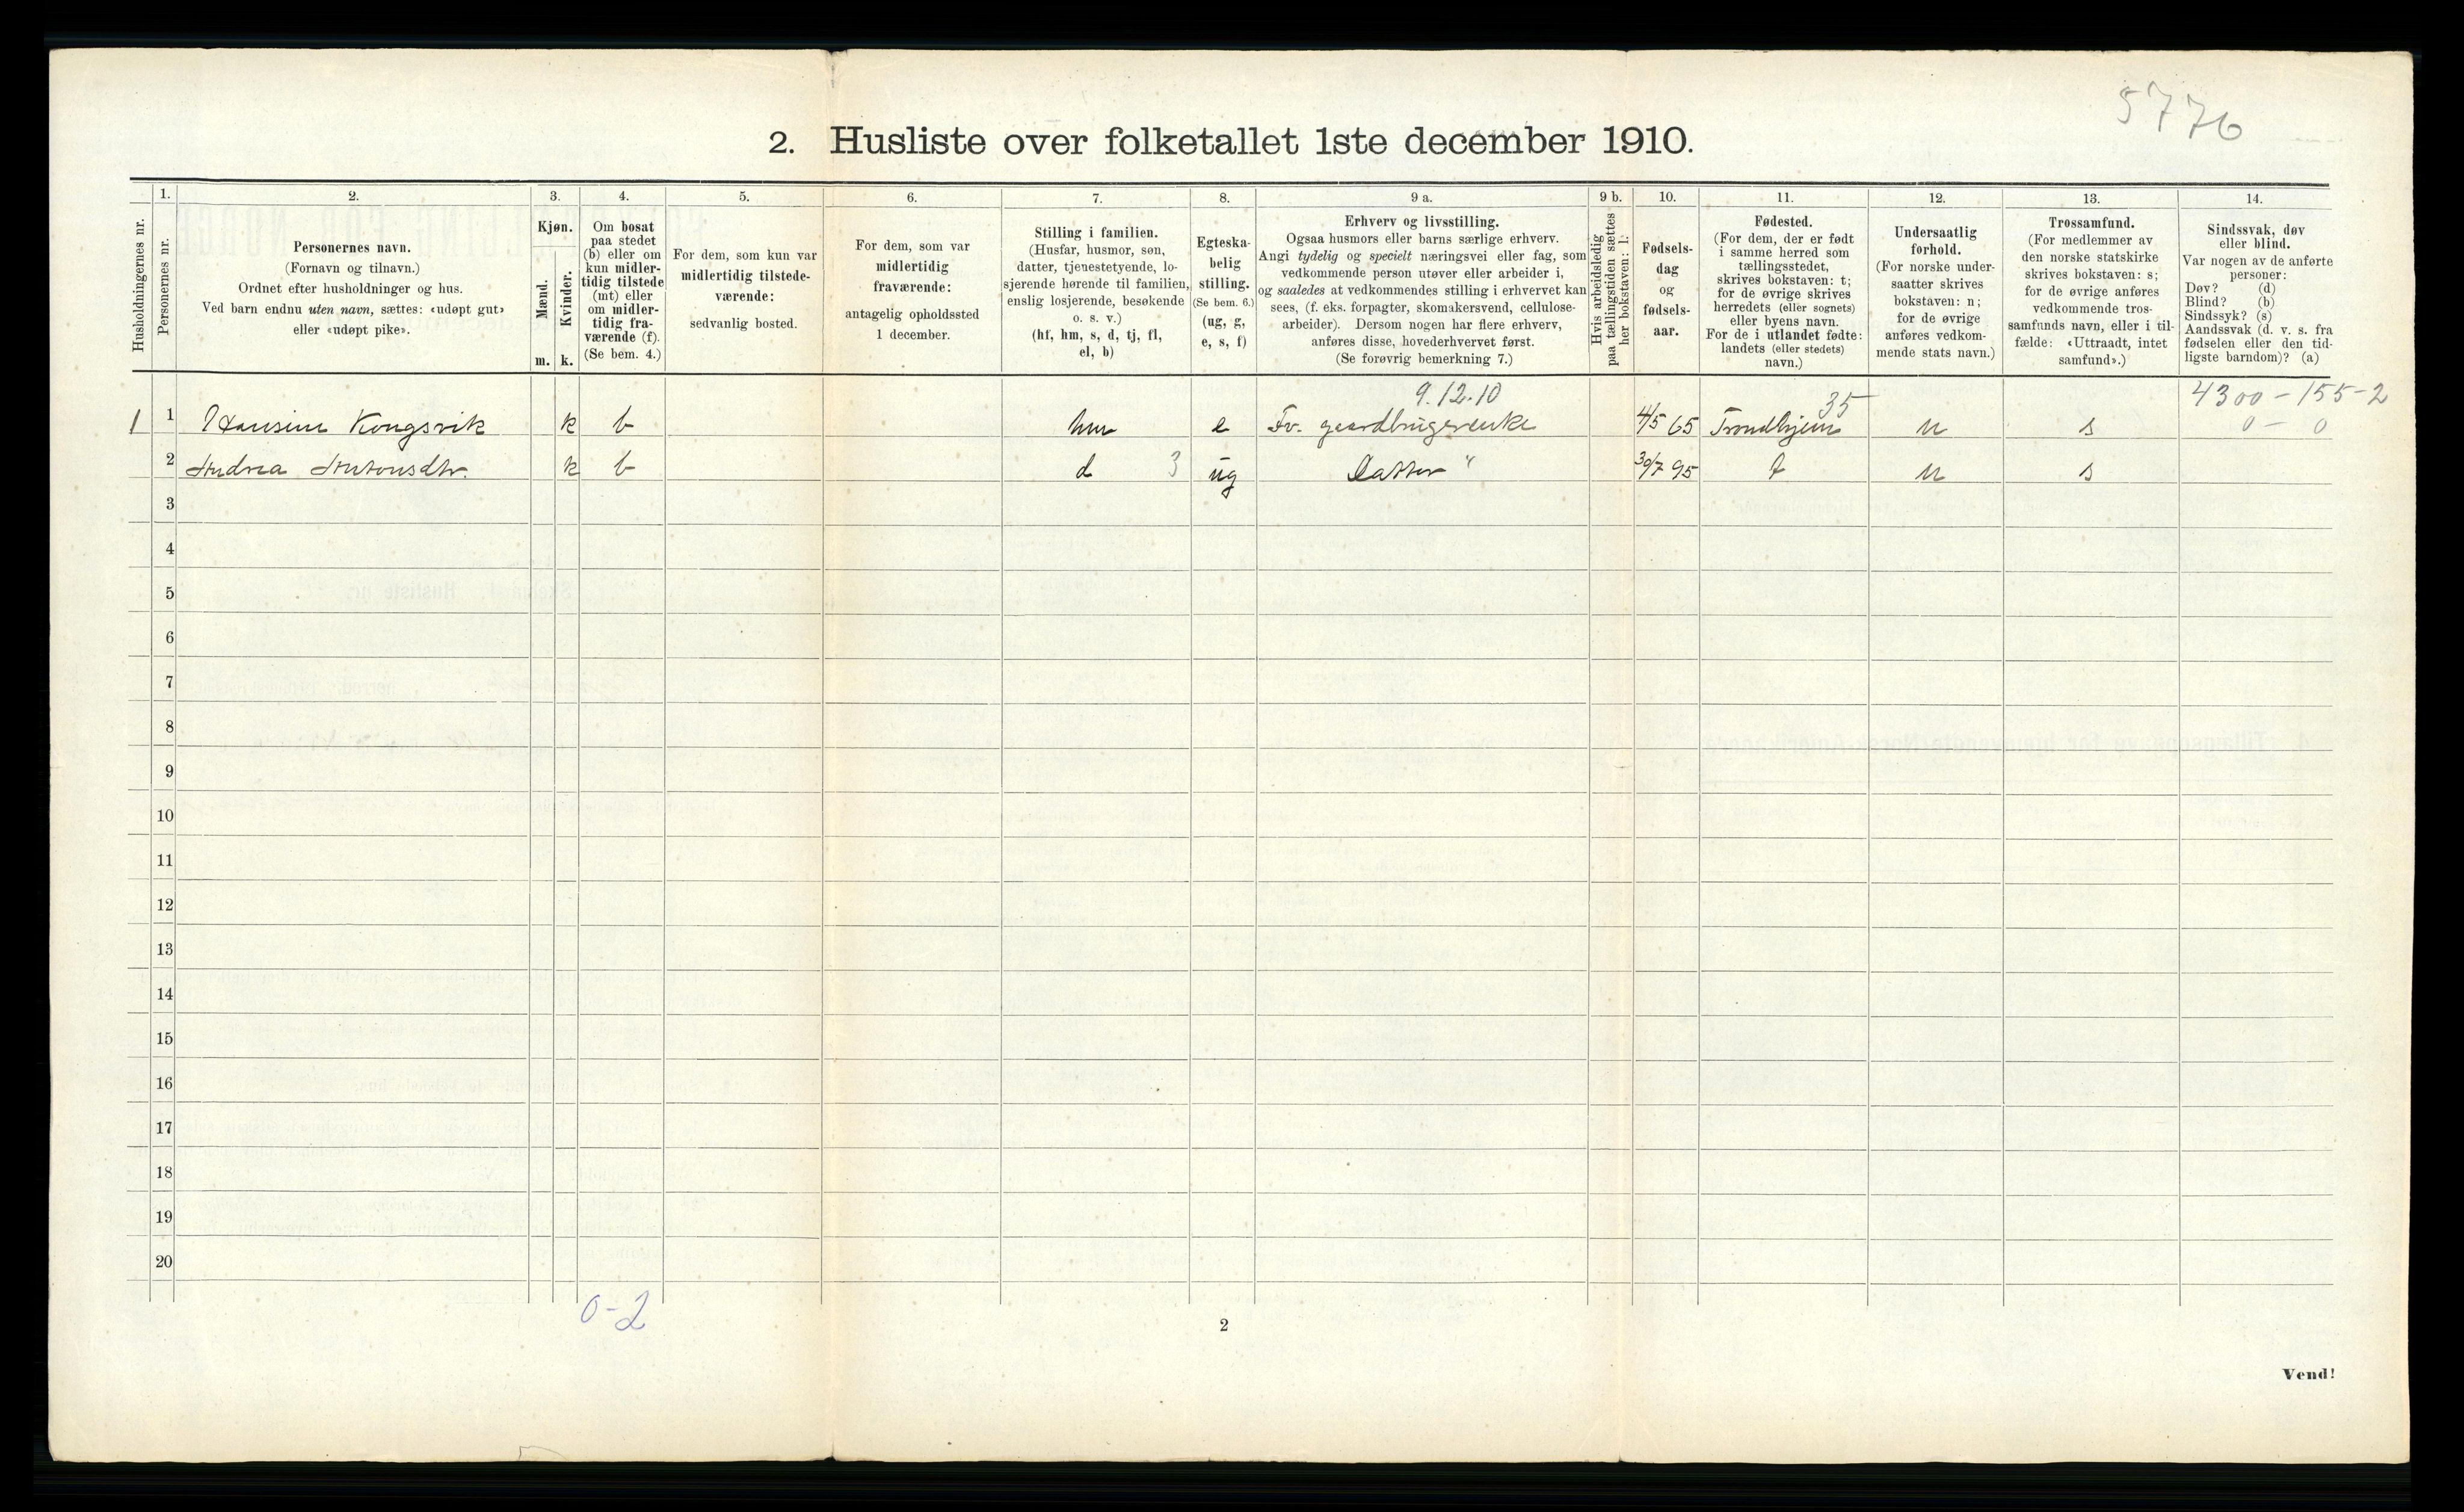 5776
2. Husliste over folketallet 1ste december 1910.
Husholdningernes nr.
1.
Personernes nr.
2.
Personernes navn.
(Fornavn og tilnavn.)
Ordnet efter husholdninger og hus.
Ved barn endnu uten navn, sættes: «udøpt gut»
eller «udøpt pike».
3.
Kjøn.
Mænd.
m.
Kvinder.
k.
4.
Om bosat
paa stedet
(b) eller om
kun midler-
tidig tilstede
(mt) eller
om midler-
tidig fra-
værende (f).
(Se bem. 4.)
5.
For dem, som kun var
midlertidig tilstede-
værende:
sedvanlig bosted.
6.
For dem, som var
midlertidig
fraværende:
antagelig opholdssted
1 december.
7.
Stilling i familien.
(Husfar, husmor, søn,
datter, tjenestetyende, lo-
sjerende hørende til familien,
enslig losjerende, besøkende
o. s. v.)
(hf, hm, s, d, tj, fl,
el, b)
8.
Egteska-
belig
stilling.
(Se bem. 6.)
(ug, g,
e, s, f)
9 a.
Erhverv og livsstilling.
Ogsaa husmors eller barns særlige erhverv.
Angi tydelig og specielt næringsvei eller fag, som
vedkommende person utøver eller arbeider i,
og saaledes at vedkommendes stilling i erhvervet kan
sees, (f. eks. forpagter, skomakersvend, cellulose-
arbeider). Dersom nogen har flere erhverv,
anføres disse, hovederhvervet først.
(Se forøvrig bemerkning 7.)
9 b.
Hvis arbeidsledig
paa tællingstiden sættes
her bokstaven: l:
10.
Fødsels-
dag
og
fødsels-
aar.
11.
Fødested.
(For dem, der er født
i samme herred som
tællingsstedet,
skrives bokstaven: t;
for de øvrige skrives
herredets (eller sognets)
eller byens navn.
For de i utlandet fødte:
landets (eller stedets)
navn.)
12.
Undersaatlig
forhold.
(For norske under-
saatter skrives
bokstaven: n;
for de øvrige
anføres vedkom-
mende stats navn.)
13.
Trossamfund.
(For medlemmer av
den norske statskirke
skrives bokstaven: s;
for de øvrige anføres
vedkommende tros-
samfunds navn, eller i til-
fælde: «Uttraadt, intet
samfund».)
14.
Sindssvak, døv
eller blind.
Var nogen av de anførte
personer:
Døv? (d)
Blind? (b)
Sindssyk? (s)
Aandssvak (d. v. s. fra
fødselen eller den tid-
ligste barndom)? (a)
9.12.10 35 4300-155-2
1 1 Hansine Kongsvik k b hm e Fv. gaardbrugerenke 4/5 65 Trondhjem n s 0-0
2 Andrea Antonsdtr. k b d 3 ug Datter " 30/7 95 t n s
3
4
5
6
7
8
9
10
11
12
13
14
15
16
17
18
19
20
0-2
2
Vend!